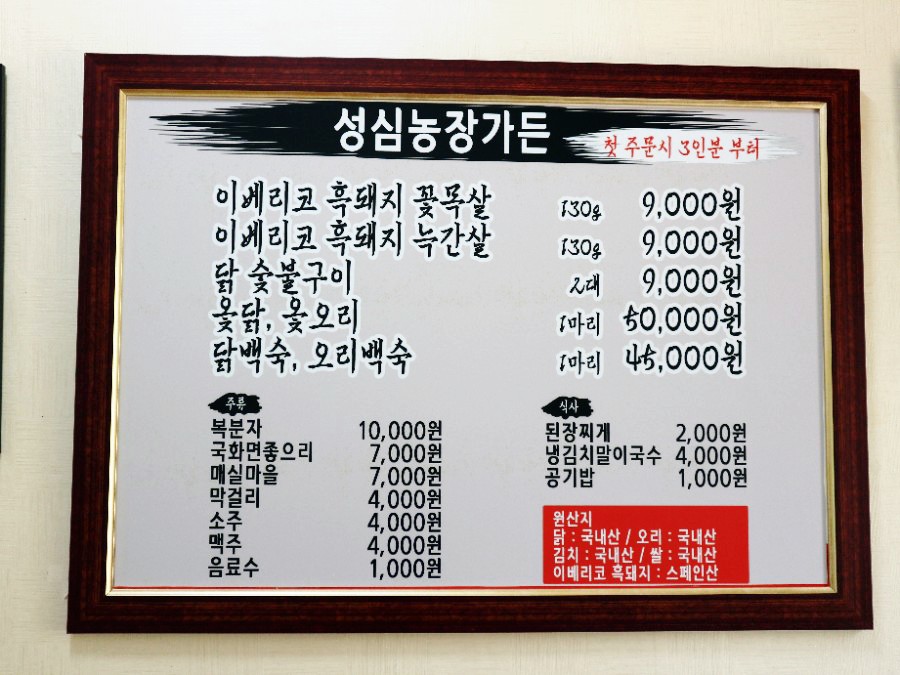 성심농장가든
첫 주문시 3인분 부터
이베리코 흑돼지 꽃목살 130g 9,000원
이베리코 흑돼지 늑간살 130g 9,000원
닭 숯불구이 2대 9,000원
옻닭, 옻오리 1마리 50,000원
닭백숙, 오리백숙 1마리 45,000원
주류
복분자 10,000원
국화면좋으리 7,000원
매실마을 7,000원
막걸리 4,000원
소주 4,000원
맥주 4,000원
음료수 1,000원
식사
된장찌게 2,000원
냉김치말이국수 4,000원
공기밥 1,000원
원산지
닭 : 국내산 / 오리 : 국내산
김치 : 국내산 / 쌀 : 국내산
이베리코 흑돼지 : 스페인산